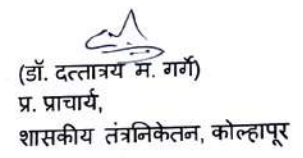 (डॉ. दत्तात्रय म. गर्गे)
प्र. प्राचार्य,
शासकीय तंत्रनिकेतन, कोल्हापूर